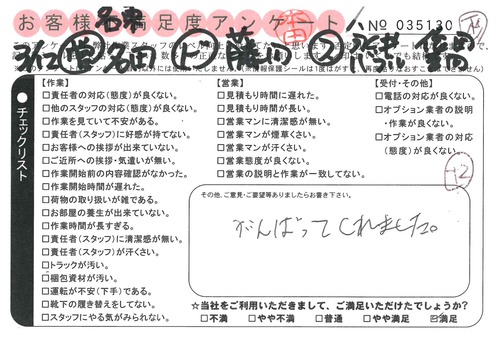 お客様 満足度アンケート No 035130
名東
3/23 営 名西
チェックリスト
【作業】
□責任者の対応(態度)が良くない。
□他のスタッフの対応(態度)が良くない。
□作業を見ていて不安がある。
□責任者(スタッフ)に好感が持てない。
□お客様への挨拶が出来ていない。
□ご近所への挨拶・気遣いが無い。
□作業開始前の内容確認がなかった。
□作業開始時間が遅れた。
□荷物の取り扱いが雑である。
□お部屋の養生が出来ていない。
□作業時間が長すぎる。
□責任者(スタッフ)に清潔感が無い。
□責任者(スタッフ)が汗くさい。
□トラックが汚い。
□梱包資材が汚い。
□運転が不安(下手)である。
□靴下の履き替えをしてない。
□スタッフにやる気がみられない。
【営業】
□見積もり時間に遅れた。
□見積もり時間が長い。
□営業マンに清潔感が無い。
□営業マンが煙草くさい。
□営業マンが汗くさい。
□営業態度が良くない。
□営業の説明と作業が一致してない。
【受付・その他】
□電話の対応が良くない。
□オプション業者の説明
・作業が良くない。
□オプション業者の対応
(態度)が良くない。
12
その他、ご意見・ご要望等ありましたらお書き下さい。
がんばってくれました。
☆当社をご利用いただきまして、ご満足いただけたでしょうか?
□不満 □やや不満 □普通 □やや満足 ☑満足